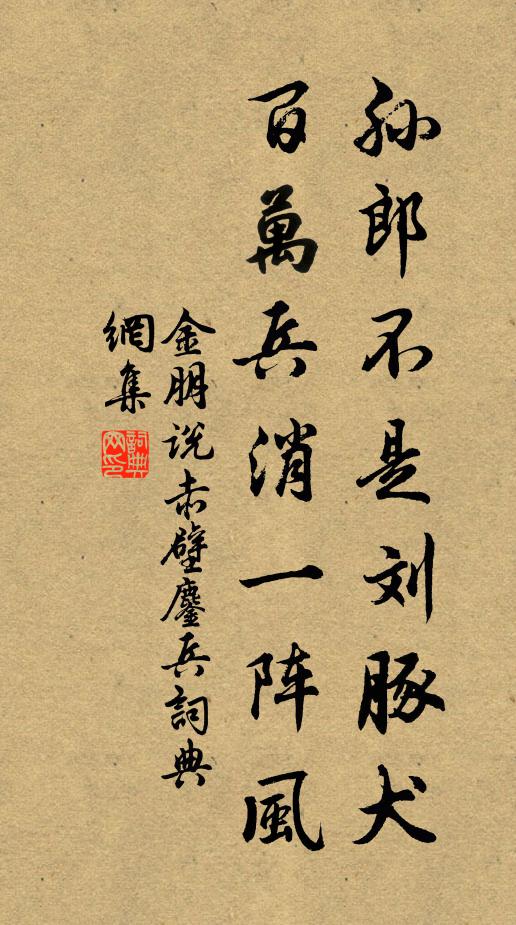 孙郎不是刘豚犬
百萬兵消一阵風
金朋说赤壁鏖兵詞典
網集
詞典
网印